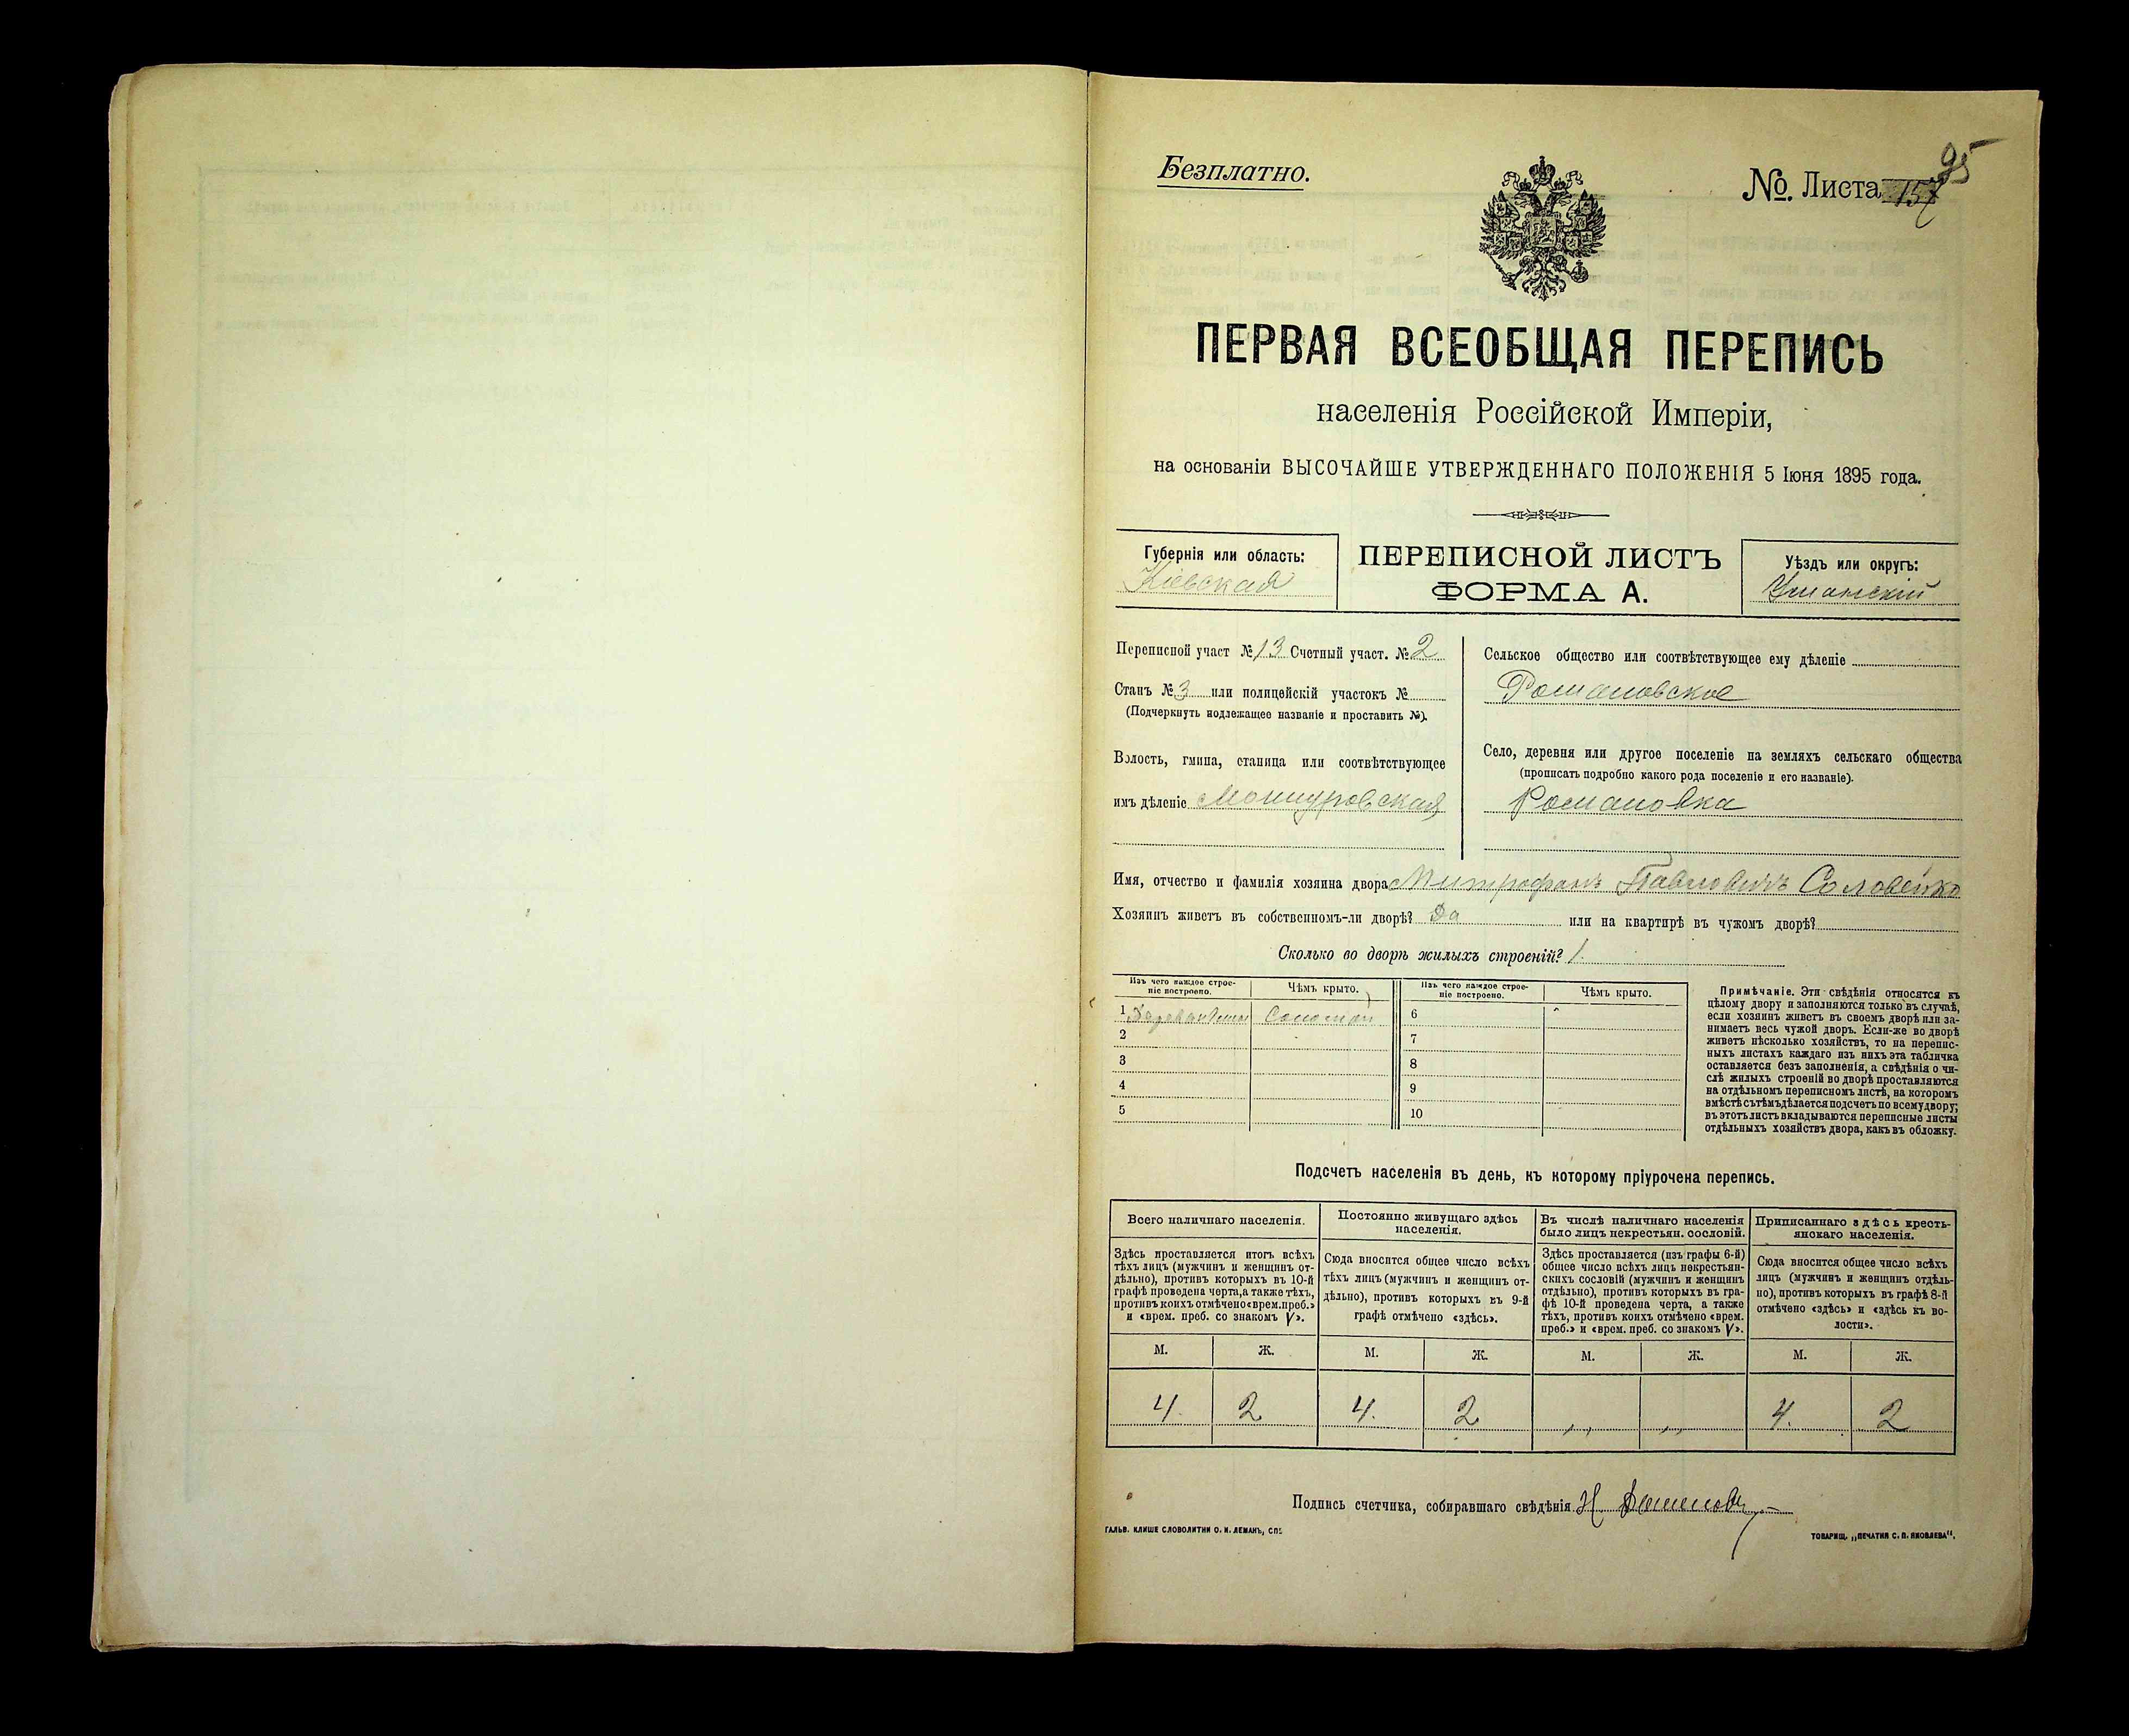 Безплатно.
№. Листа 157 95
ПЕРВАЯ ВСЕОБЩАЯ ПЕРЕПИСЬ
населенія Россійской Имперіи,
на основаніи ВЫСОЧАЙШЕ УТВЕРЖДЕННАГО ПОЛОЖЕНІЯ 5 Іюня 1895 года.
Губернія или область:
Кіевская
ПЕРЕПИСНОЙ ЛИСТЪ
ФОРМА А.
Уѣздъ или округъ:
Уманскій
Переписной участ № 13 Счетный участ. № 2
Станъ № 3 или полицейскій участокъ №
(Подчеркнуть подлежащее названіе и проставить №).
Волость, гмина, станица или соотвѣтствующее
имъ дѣленіе
Сельское общество или соотвѣтствующее ему дѣленіе
Романовское
Село, деревня или другое поселеніе на земляхъ сельскаго общества
(прописать подробно какого рода поселеніе и его названіе).
Романовка
Имя, отчество и фамилія хозяина двора Митрофанъ Павловичъ Соловейко
Хозяинъ живетъ въ собственномъ-ли дворѣ? Да или на квартирѣ въ чужомъ дворѣ?
Сколько во дворѣ жилыхъ строеній? 1
Изъ чего каждое строе-
ніе построено.
Чѣмъ крыто.
Изъ чего каждое строе-
ніе построено.
Чѣмъ крыто.
1 Соломой
2
3
4
5
6
7
8
9
10
Примѣчаніе. Эти свѣдѣнія относятся къ
цѣлому двору и заполняются только въ случаѣ,
если хозяинъ живетъ въ своемъ дворѣ или за-
нимаетъ весь чужой дворъ. Если-же во дворѣ
живетъ нѣсколько хозяйствъ, то на перепис-
ныхъ листахъ каждаго изъ нихъ эта табличка
оставляется безъ заполненія, а свѣдѣнія о чи-
слѣ жилыхъ строеній во дворѣ проставляются
на отдѣльномъ переписномъ листѣ, на которомъ
вмѣстѣ съ тѣмъ дѣлается подсчетъ по всему двору;
въ этотъ листъ вкладываются переписные листы
отдѣльныхъ хозяйствъ двора, какъ въ обложку.
Подсчетъ населенія въ день, къ которому пріурочена перепись.
Всего наличнаго населенія.
Здѣсь проставляется итогъ всѣхъ
тѣхъ лицъ (мужчинъ и женщинъ от-
дѣльно), противъ которыхъ въ 10-й
графѣ проведена черта, а также тѣхъ,
противъ коихъ отмѣчено «врем. преб.»
и «врем. преб. со знакомъ V».
Постоянно живущаго здѣсь
населенія.
Сюда вносится общее число всѣхъ
тѣхъ лицъ (мужчинъ и женщинъ от-
дѣльно), противъ которыхъ въ 9-й
графѣ отмѣчено «здѣсь».
Въ числѣ наличнаго населенія
было лицъ некрестьян. сословій.
Здѣсь проставляется (изъ графы 6-й)
общее число всѣхъ лицъ некрестьян-
скихъ сословій (мужчинъ и женщинъ
отдѣльно), противъ которыхъ въ гра-
фѣ 10-й проведена черта, а также
тѣхъ, противъ коихъ отмѣчено «врем.
преб.» и «врем. преб. со знакомъ V».
Приписаннаго здѣсь кресть-
янскаго населенія.
Сюда вносится общее число всѣхъ
лицъ (мужчинъ и женщинъ отдѣль-
но), противъ которыхъ въ графѣ 8-й
отмѣчено «здѣсь» и «здѣсь къ во-
лости».
М. Ж. М. Ж. М. Ж. М. Ж.
4. 2 4. 2 „ „ 4. 2
Подпись счетчика, собиравшаго свѣдѣнія
ГАЛЬВ. КЛИШЕ СЛОВОЛИТНИ О. И. ЛЕМАНЪ, СПБ.
ТОВАРИЩ. „ПЕЧАТНЯ С. П. ЯКОВЛЕВА“.